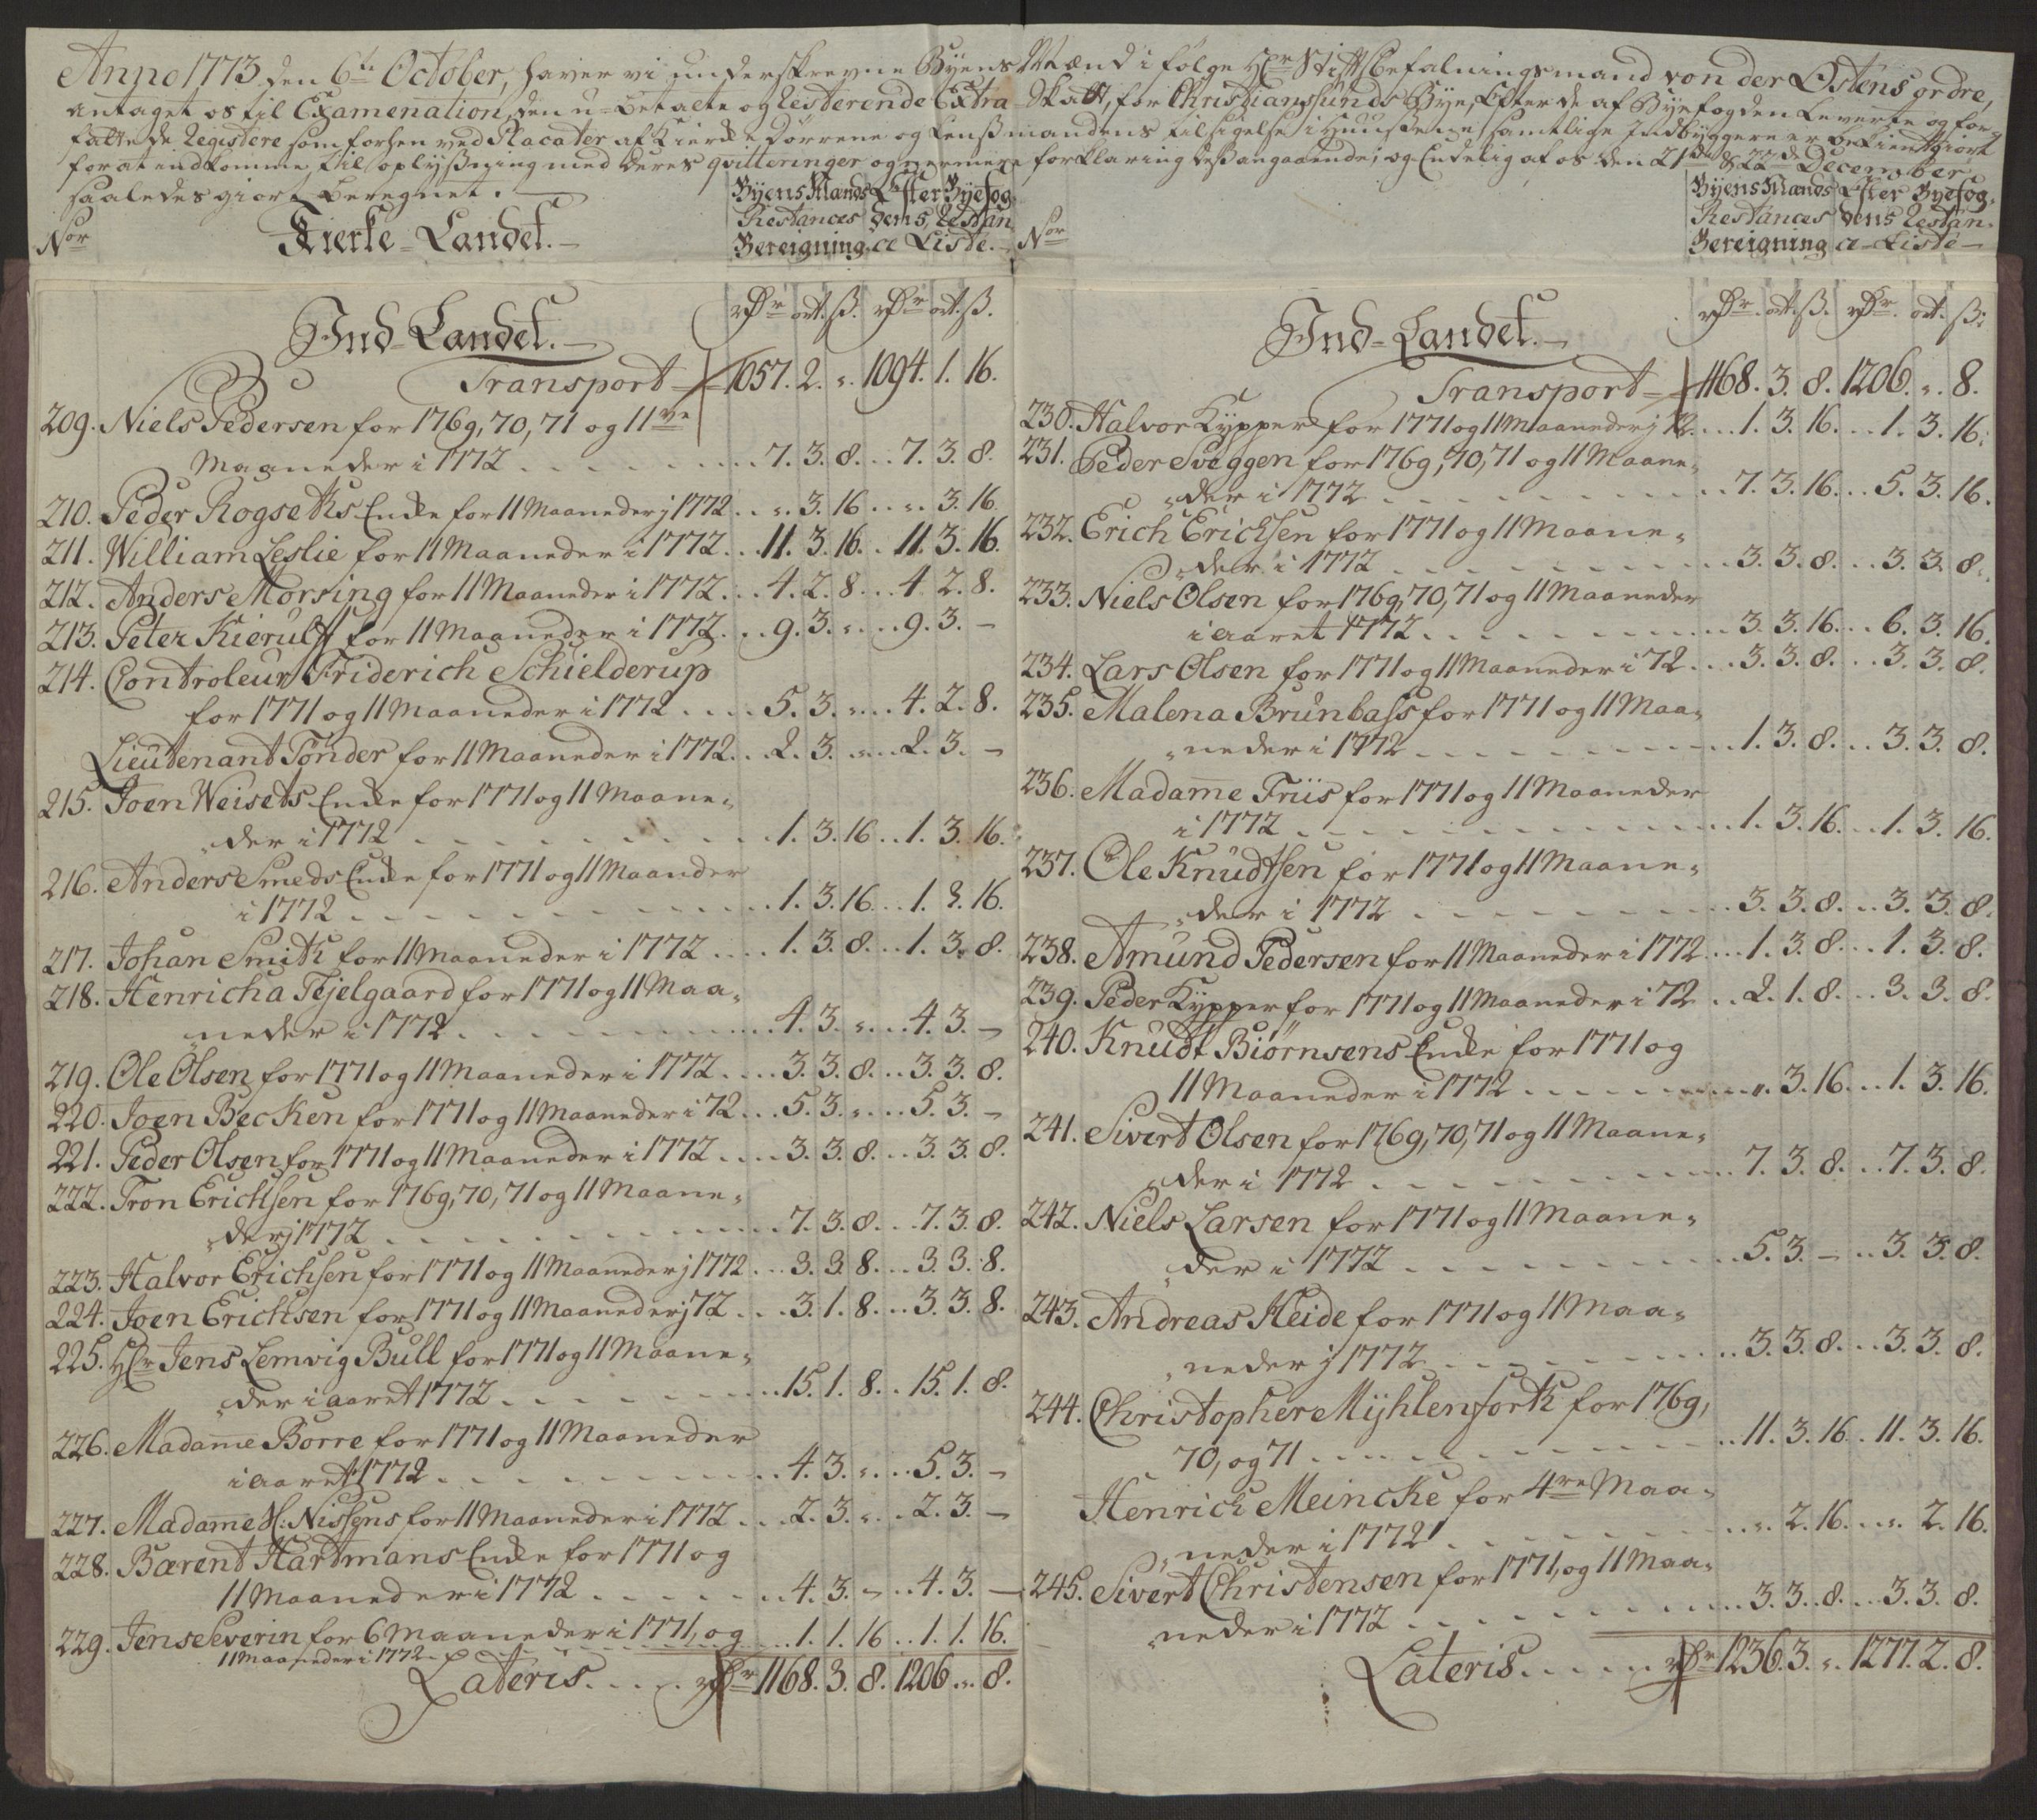 Anno 1773 den 6te October, haver vi underskrevne Byens Mænd i følge Hr Stiftbefalningsmand von der Østens ordre,
antaget os til Examenation, den u-betalte og Resterende Extra-Skatt, for Christiansunds Bye, Efter de af Byefogden Leverte og for-
fattede Registere som forhen ved Placater af Kierke Dørrene og Lensmandens tilsigelse i Huusene samtlige Indbyggere er bekientgiort
for at endkomme, til oplysning med deres qvitteringer og nermere forklaring desangaaende; og Endelig af os den 21de & 22de December
saaledes giort beregnet.
Nor
Kierke-Landet.
Byens Mænds Restances Bereigning
Efter Byefogdens, Restance Liste.
Ind-Landet.
rDr ort. ß. rDr ort. ß.
Transport 1057. 2. „. 1094. 1. 16.
209. Niels Pedersen for 1769, 70, 71 og 11ve
Maaneder i 1772 . . . 7. 3. 8. . . 7. 3. 8.
210. Peder Rogseths Encke for 11 Maaneder j 1772 . . „. 3. 16 . . „. 3. 16.
211. William Leslie for 11 Maaneder i 1772 . . 11. 3. 16. . 11. 3. 16.
212. Anders Morsing for 11 Maaneder i 1772 . . 4. 2. 8. . . 4. 2. 8.
213. Peter Kierulff for 11 Maaneder i 1772 . . 9. 3. „. . . 9. 3. –
214. Controleur Friderich Schielderup
for 1771 og 11 Maaneder i 1772 . . . 5. 3. „. . . 4. 2. 8.
Lieutenant Tønder for 11 Maaneder i 1772. . . 2. 3. „. . . 2. 3. –
215. Joen Weisets Encke for 1771 og 11 Maane-
der i 1772 . . . 1. 3. 16 . . 1. 3. 16.
216. Anders Smeds Encke for 1771 og 11 Maander
i 1772 . . . 1. 3. 16. . . 1. 3. 16.
217. Johan Smith for 11 Maaneder i 1772 . . . 1. 3. 8. . . 1. 3. 8.
218. Henricha Tejelgaard for 1771 og 11 Maa-
neder i 1772 . . . 4. 3. „. . . 4. 3. –
219. Ole Olsen for 1771 og 11 Maaneder i 1772 . . . 3. 3. 8. . . 3. 3. 8.
220. Joen Becken for 1771 og 11 Maaneder i 72 . . . 5. 3. „. . . 5. 3. –
221. Peder Olsen for 1771 og 11 Maaneder i 1772 . . . 3. 3. 8. . . 3. 3. 8.
222. Tron Erichsen for 1769, 70, 71 og 11 Maane-
der j 1772 . . . 7. 3. 8. . . 7. 3. 8.
223. Halvor Erichsen for 1771 og 11 Maaneder j 1772 . . . 3. 3. 8. . . 3. 3. 8.
224. Joen Erichsen for 1771 og 11 Maaneder j 72 . . . 3. 1. 8. . . 3. 3. 8.
225. Hr Jens Lemvig Bull for 1771 og 11 Maane-
der i aaret 1772 . . . 15. 1. 8. . 15. 1. 8.
226. Madame Borre for 1771 og 11 Maaneder
i aaret 1772 . . . 4. 3. „. . . 5. 3. –
227. Madame H: Nissens for 11 Maaneder i 1772 . . . 2. 3. „. . 2. 3. –
228. Bærent Hartmans Encke for 1771 og
11 Maaneder i 1772 . . . 4. 3. – . . 4. 3. –
229. Jens Severin for 6 Maaneder i 1771, og . . . 1. 1. 16 . . 1. 1. 16.
11 Maaneder i 1772
Lateris. . . . rDr 1168. 3. 8. 1206 „. 8.
Nor
Byens Mænds Restances Bereigning
Efter Byefogdens Restance-Liste
Ind-Landet.
rDr. ort. ß. rDr. ort. ß:
Transport 1168. 3. 8. 1206. „. 8.
230. Halvor Kypper for 1771 og 11 Maaneder j 72. . . 1. 3. 16. . . 1. 3. 16.
231. Peder Sveggen for 1769, 70, 71 og 11 Maane-
der i 1772 . . . 7. 3. 16. . . 5. 3. 16.
232. Erich Erichsen for 1771 og 11 Maane-
der i 1772 . . . 3. 3. 8. . . 3. 3. 8.
233. Niels Olsen for 1769, 70, 71 og 11 Maaneder
i aaret 1772 . . . 3. 3. 16. . . 6. 3. 16.
234. Lars Olsen for 1771 og 11 Maaneder i 72 . . . 3. 3. 8. . . 3. 3. 8.
235. Malena Brunbass for 1771 og 11 Maa-
neder i 1772 . . . 1. 3. 8. . . 3. 3. 8.
236. Madame Friis for 1771 og 11 Maaneder
i 1772 . . . 1. 3. 16. . . 1. 3. 16.
237. Ole Knudtsen for 1771 og 11 Maane-
der i 1772 . . . 3. 3. 8. . . 3. 3. 8.
238. Amund Pedersen for 11 Maaneder i 1772 . . . 1. 3. 8. . . 1. 3. 8.
239. Peder Kypper for 1771 og 11 Maaneder i 72 . . 2. 1. 8. . . 3. 3. 8.
240. Knudt Biörnsens Encke for 1771 og
11 Maaneder i 1772 . . . „. 3. 16. . . 1. 3. 16.
241. Sivert Olsen for 1769, 70, 71 og 11 Maane-
der i 1772 . . . 7. 3. 8. . . 7. 3. 8.
242. Niels Larsen for 1771 og 11 Maane-
der i 1772 . . . 5. 3. – . . 3. 3. 8.
243. Andreas Heide for 1771 og 11 Maa-
neder j 1772 . . . 3. 3. 8. . . 3. 3. 8.
244. Christopher Myhlenforth for 1769,
70, og 71 . . . 11. 3. 16. . 11. 3. 16.
Henrich Meincke for 4re Maa-
neder i 1772 . . . „. 2. 16. . . „. 2. 16.
245. Sivert Christensen for 1771, og 11 Maa-
neder i 1772 . . . 3. 3. 8. . . 3. 3. 8.
Lateris. . . . rDr 1236. 3. „. 1277. 2. 8.